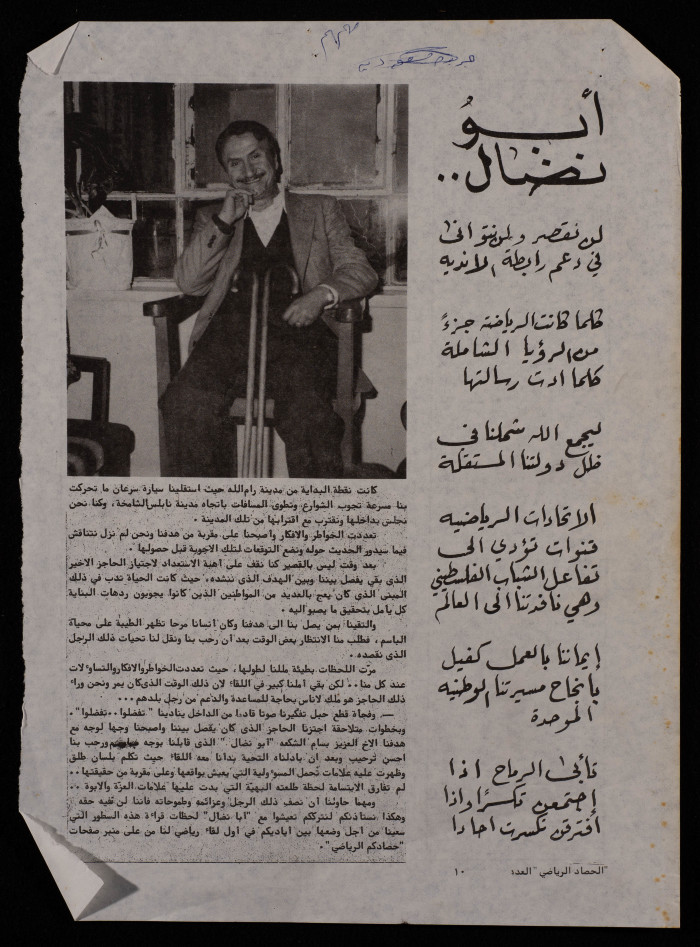 أبو
نضال..
لن نقصر ولن نتوانى
في دعم رابطة الأندية
كلما كانت الرياضة جزءً
من الرؤيا الشاملة
كلما ادت رسالتها
ليجمع الله شملنا في
ظل دولتنا المستقلة
الاتحادات الرياضيه
قنوات تؤدي الى
تفاعل الشباب الفلسطيني
وهي نافذتنا الى العالم
إيماننا بالعمل كفيل
بإنجاح مسيرتنا الوطنيه
الموحدة
تأبى الرماح اذا
إجتمعن تكسرًا واذا
أفترقن تكسرت احادا
كانت نقطة البداية من مدينة رام الله حيث استقلينا سيارة سرعان ما تحركت
بنا مسرعة تجوب الشوارع وتطوى المسافات باتجاه مدينة نابلس الشامخة، وكنا نحن
نجلس بداخلها ونقترب مع اقترابها من تلك المدينة.
تعددت الخواطر والافكار واصبحنا على مقربة من هدفنا ونحن لم نزل نتناقش
فيما سيدور الحديث حوله ونضع التوقعات لتلك الاجوبة قبل حصولها.
بعد وقت ليس بالقصير كنا نقف على اهبة الاستعداد لاجتياز الحاجز الاخير
الذى بقي يفصل بيننا وبين الهدف الذى ننشده، حيث كانت الحياة تدب في ذلك
المبنى الذى كان يعج بالعديد من المواطنين الذين كانوا يجوبون ردهات البناية
كل يأمل بتحقيق ما يصبو اليه.
والتقينا بمن يصل بنا الى هدفنا وكان انسانا مرحا تظهر الطيبة على محياه
الباسم، فطلب منا الانتظار بعض الوقت بعد ان رحب بنا ونقل لنا تحيات ذلك الرجل
الذى نقصده.
مرّت اللحظات بطيئة مللنا لطولها، حيث تعددت الخواطر والافكار والتساؤلات
عند كل منا.. لكن بقي املنا كبير في اللقاء لان ذلك الوقت الذى كان يمر ونحن وراء
ذلك الحاجز هو ملك لاناس بحاجة للمساعدة والدعم من رجل بلدهم...
وفجأة قطع حبل تفكيرنا صوتا قادما من الداخل ينادينا "تفضلوا.. تفضلوا".
وبخطوات متلاحقة اجتزنا الحاجز الذى كان يفصل بيننا واصبحنا وجها لوجه مع
هدفنا الاخ العزيز بسام الشكعه "ابو نضال" الذى قابلنا بوجه ورحب بنا
احسن ترحيب وبعد ان بادلناه التحية بدانا معه اللقاء حيث تكلم بلسان طلق
وظهرت عليه علامات تحمل المسوءولية التي يعيش بواقعها وعلى مقربة من حقيقتها..
لم تفارق الابتسامة لحظة طلعته البهيّة التي بدت عليها علامات العزّة والابوة..
ومهما حاولنا ان نصف ذلك الرجل وعزائمه وطموحاته فاننا لن نفيه حقه
وهكذا نستاذنكم لنترككم تعيشوا مع "ابا نضال" لحظات قراءة هذه السطور التي
سعينا من اجل وضعها بين اياديكم في اول لقاء رياضي لنا من على منبر صفحات
"حصادكم الرياضي".
"الحصاد الرياضي" العدد ١٠